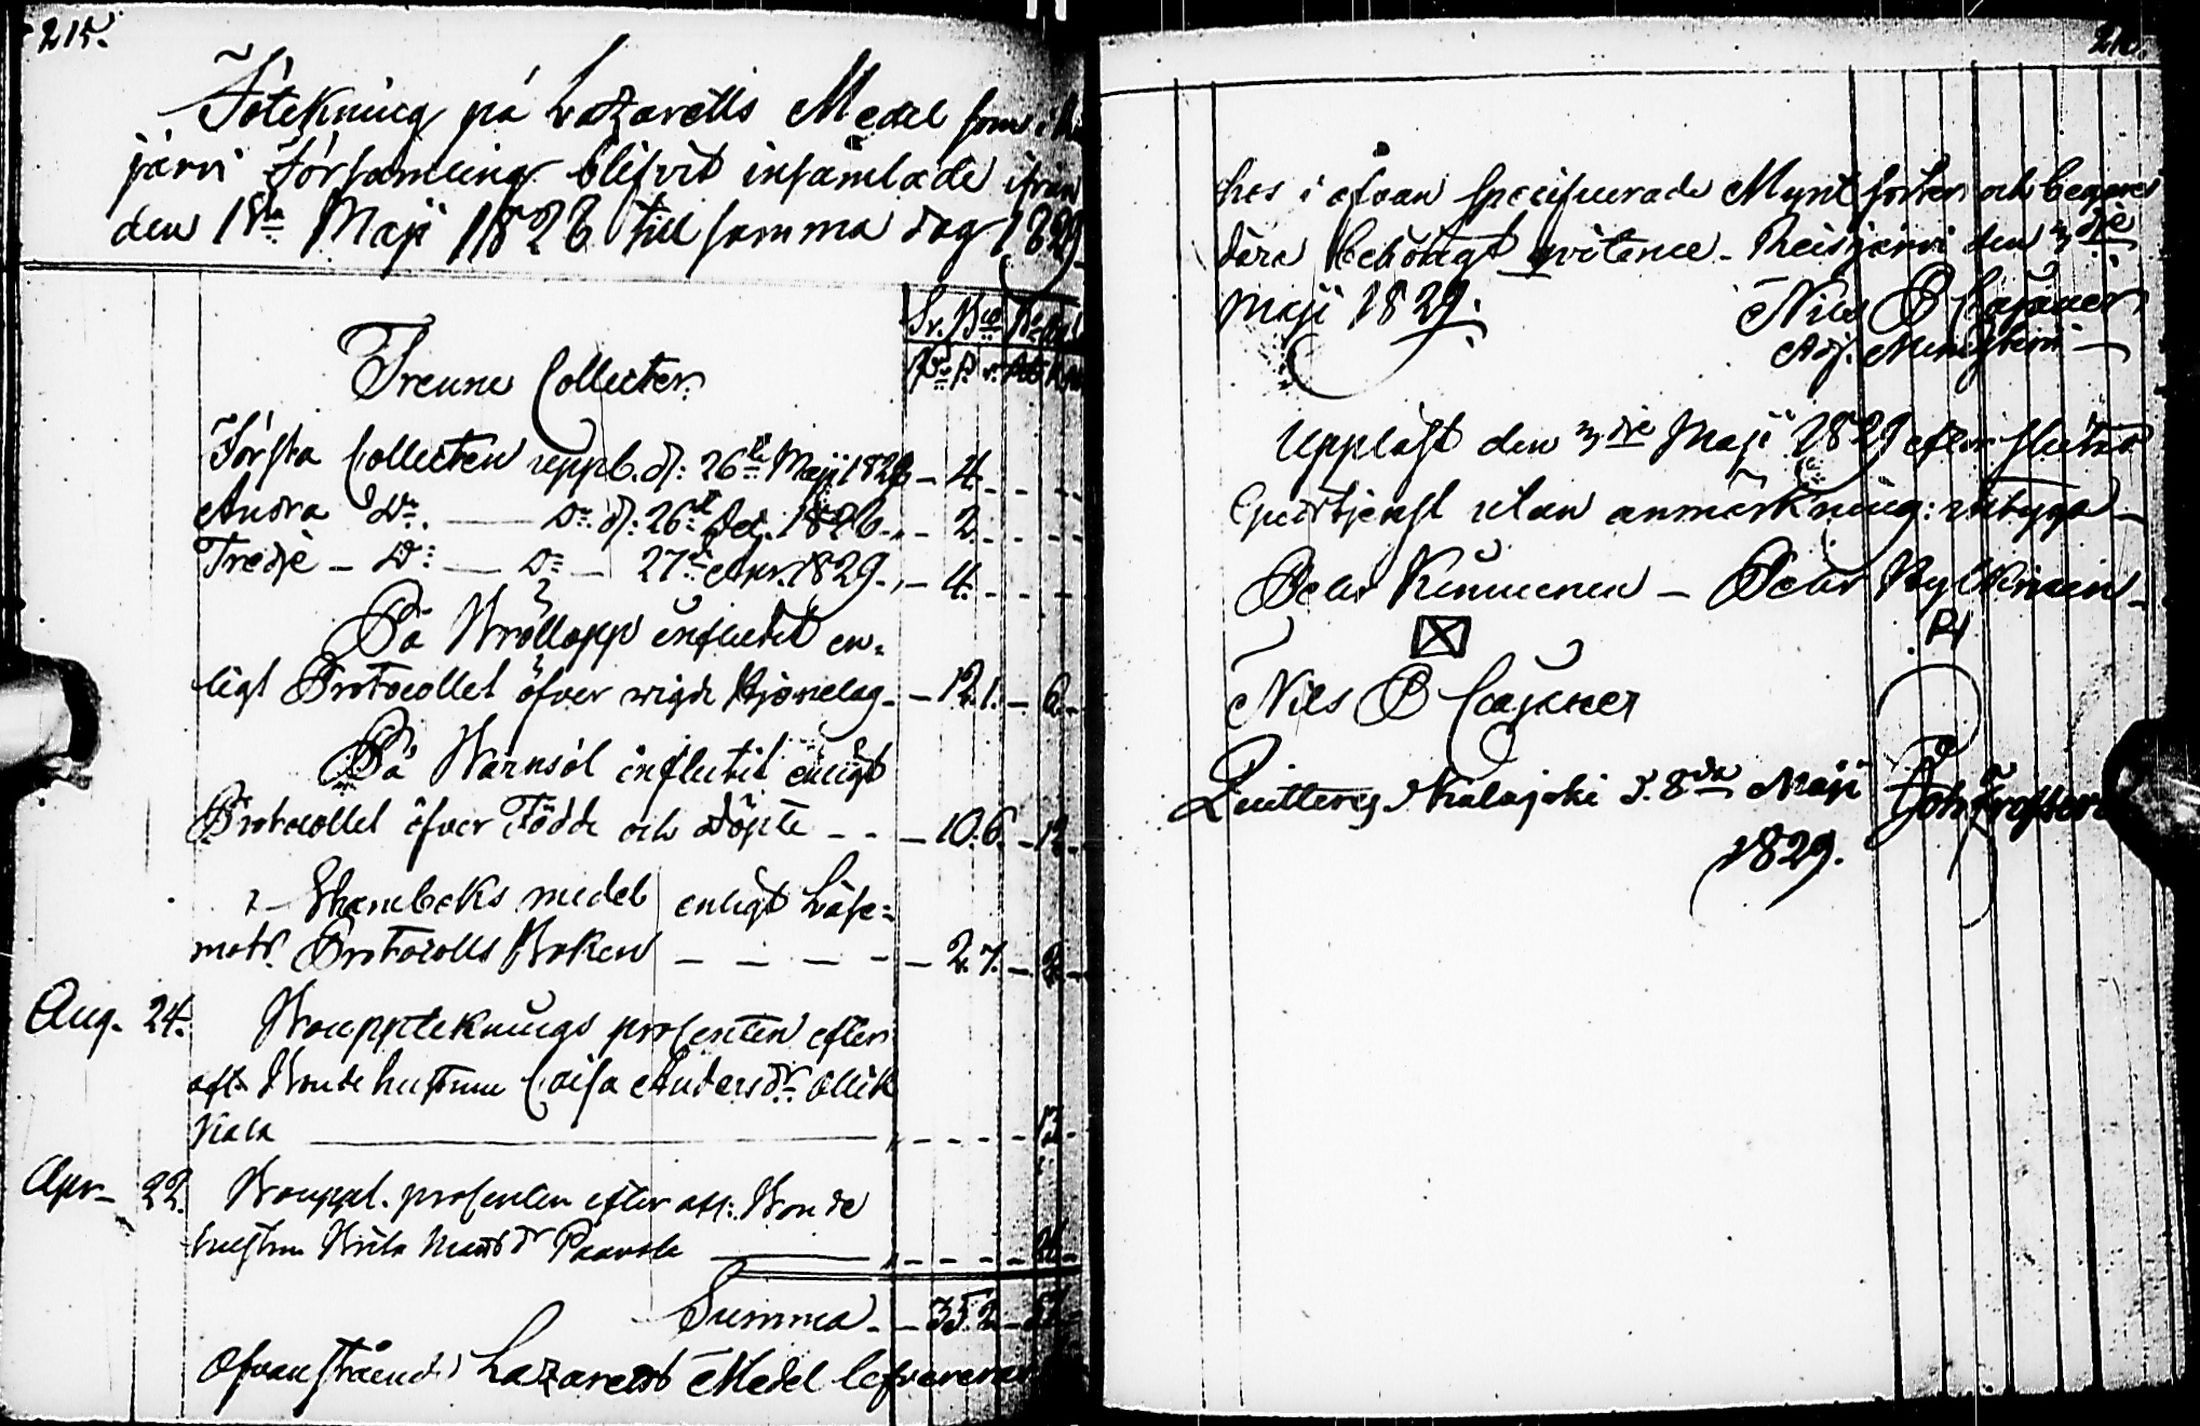 215.
Förtekning på Lazaretts Medel som i
järvi Församling blifvit insamlade ifrån
den 1sta Maji 1828 till samma dag 1829.
Trenne Collecter.
Första Collecten uppb. d: 26te Maji 1828 - 4.
Andra Do. — Do. d: 26te Dec. 1828 - 2.
Tredje - Do — Do — 27de Apr. 1829 - 4.
På Bröllopp influtit en-
ligt Protocollet öfver vigde Hjonelag - 12.1. - 6.
På Barnsöl influtit enligt
Protocollet öfver Födde och Döpte - - - 10.6. - 12.
Skambeks medel enligt Läse-
möts Protocolls Boken — — — - 2.7. - 2.
Aug. 24. Bouppteknings procenten efter
afl. Bonde hustrun Caisa Andersdr Ollik
kala
Apr. 22. Bouppt. procenten efter afl: Bonde
hustrun Brita Matsdr Paavola
Summa - 35.2
Ofvanstående Lazaretts Medel lefvereras
hos i ofvan specificerade Myntsorter och begäres
däre behörigt qvitence. Reisjärvi den 3dje
Maji 1829. Nils B Cajaner
Adj. Ministerii
Uppläst den 3dje Maji 1829 efter slutad
Gudstjenst utan anmärkning: intyga
Petter Kinnunen — Petter Kylkinen
Nils B Cajaner
Qvitteras Kalajoki d. 8da Maji Joh Frosterus
1829.